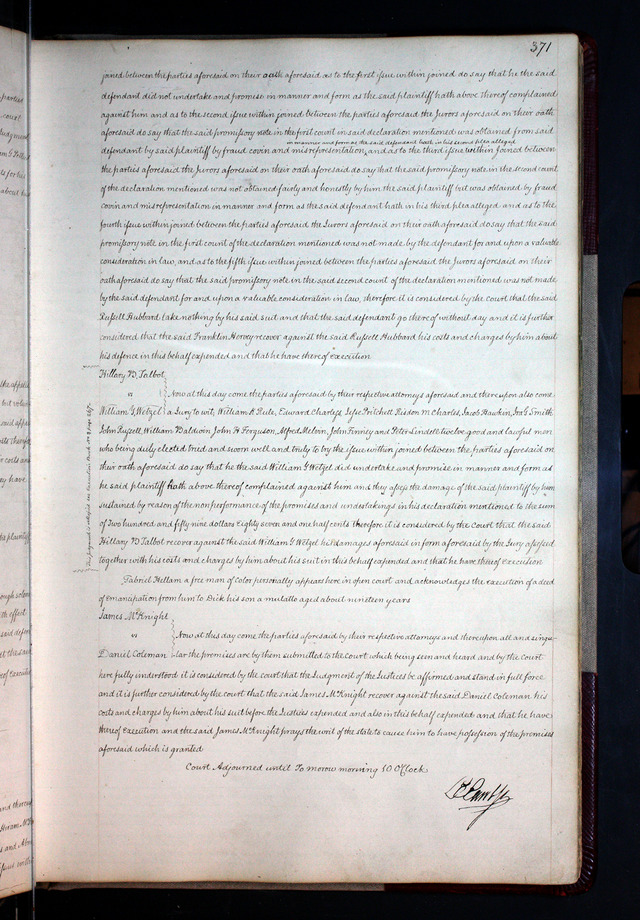 371
joined between the parties aforesaid on their oath aforesaid as to the first issue within joined do say that he the said
defendant did not undertake and promise in manner and form as the said plaintiff hath above thereof complained
against him and as to the second issue within joined between the parties aforesaid the Jurors aforesaid on their oath
aforesaid do say that the said promissory note in the first count in said declaration mentioned was obtained from said
in manner and form as the said defendant hath in his second plea alleged
defendant by said plaintiff by fraud covin and misrepresentation, and as to the third issue within joined between
the parties aforesaid the Jurors aforesaid on their oath aforesaid do say that the said promissory note in the second count
of the declaration mentioned was not obtained fairly and honestly by him the said plaintiff but was obtained by fraud
covin and misrepresentation in manner and form as the said defendant hath in his third plea alleged and as to the
fourth issue within joined between the parties aforesaid the Jurors aforesaid on their oath aforesaid do say that the said
promissory note in the first count of the declaration mentioned was not made by the defendant for and upon a valuable
consideration in law, and as to the fifth issue within joined between the parties aforesaid the Jurors aforesaid on their
oath aforesaid do say that the said promissory note in the second count of the declaration mentioned was not made
by the said defendant for and upon a valuable consideration in law, therefore it is considered by the court that the said
Russell Hubbard take nothing by his said suit and that the said defendant go thereof without day and it is further
considered that the said Franklin Horey recover against the said Russell Hubbard his costs and charges by him about
his defence in this behalf expended and that he have thereof execution
Hillary B. Talbot
vs Now at this day come the parties aforesaid by their respective attorneys aforesaid and thereupon also come
William G. Wetzel a Jury to wit, William A Rule, Edward Charless, Jesse Pritchell Risdon McCharles, Jacob Hawkin, Jas. Smith
John Russell, William Baldwin John A Ferguson, Alfred Melvin, John Finney and Peter Lindell twelve good and lawful men
who being duly elected tried and sworn well and truly to try the issue within joined between the parties aforesaid on
their oath aforesaid do say that he the said William G Wetzel did undertake and promise in manner and form as
he said plaintiff hath above thereof complained against him and they assess the damage of the said plaintiff by him
sustained by reason of the nonperformance of the promises and undertakings in his declaration mentioned to the sum
of Two hundred and fifty nine dollars Eighty seven and one half cents Therefore it is considered by the Court that the said
Hillary B Talbot recover against the said William G Wetzel his damages aforesaid in form aforesaid by the Jury assessed
together with his costs and charges by him about his suit in this behalf expended and that he have thereof execution
Gabriel Hellam a free man of color personally appears here in open court and acknowledges the execution of a deed
of emancipation from him to Dick his son a mulatto aged about nineteen years
James McKnight
vs Now at this day come the parties aforesaid by their respective attorneys and thereupon all and singu-
Daniel Coleman -lar the premises are by them submitted to the court which being seen and heard and by the Court
here fully understood it is considered by the court that the Judgment of the Justices be affirmed and stand in full force
and it is further considered by the court that the said James McKnight recover against the said Daniel Coleman his
costs and charges by him about his suit before the Justices expended and also in this behalf expended and that he have
thereof execution and the said James McKnight prays the writ of the state to cause him to have possession of the premises
aforesaid which is granted
Court Adjourned until Tomorow morning 10 O'Clock